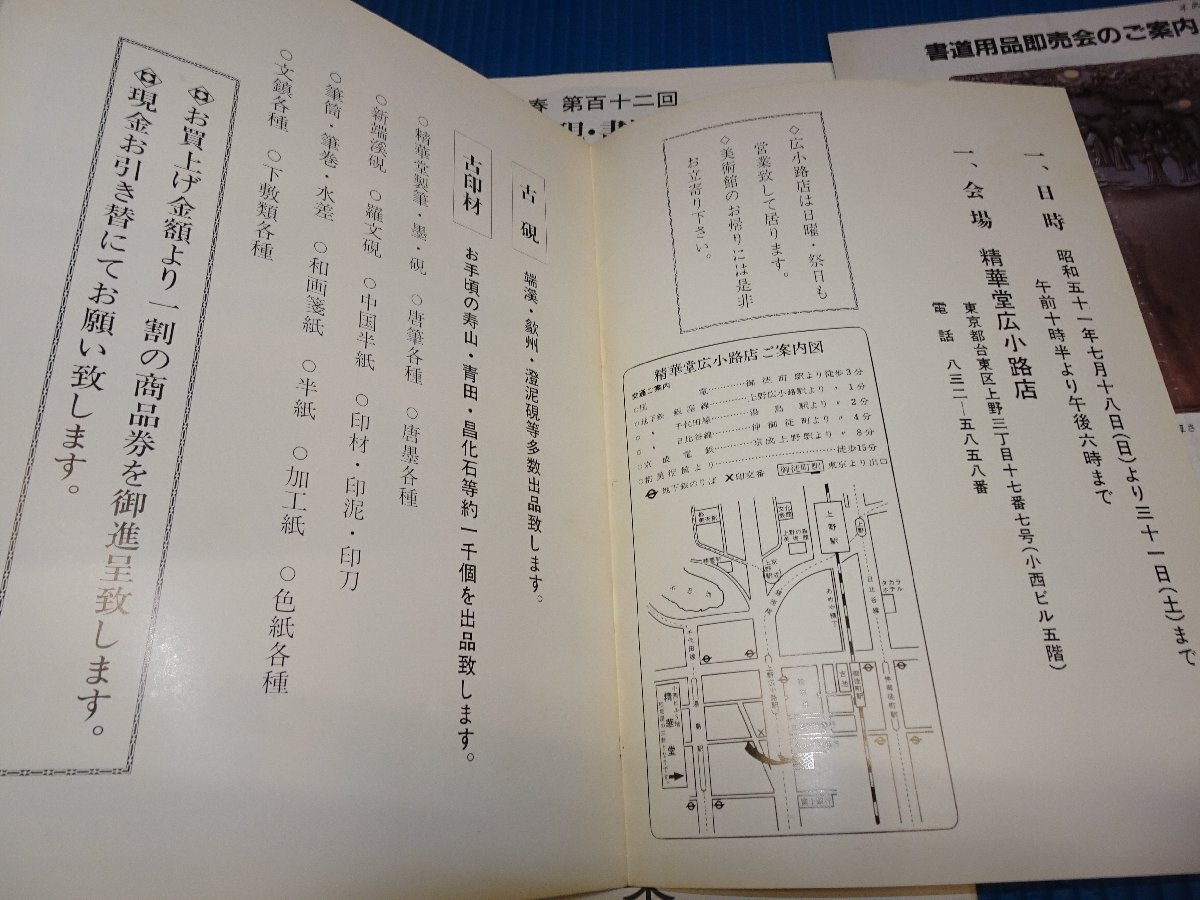 書道用品即売会のご案内
春 第百十二回
一、日時 昭和五十一年七月十八日(日)より三十一日(土)まで
午前十時半より午後六時まで
一、会場 精華堂広小路店
東京都台東区上野三丁目十七番七号(小西ビル五階)
電話 八三二―五八五八番
◇広小路店は日曜・祭日も
営業致して居ります。
◇美術館のお帰りには是非
お立寄り下さい。
精華堂広小路店ご案内図
交通ご案内
○国 電………御徒町駅より徒歩3分
○地下鉄 銀座線………上野広小路駅より 〃 1分
○ 〃 千代田線………湯島駅より 〃 2分
○ 〃 日比谷線………仲御徒町より 〃 4分
○京成電鉄………京成上野駅より 〃 8分
徒歩15分
地下鉄のりば ×印交番 御徒町駅 東京より出口
上野駅
上野
日比谷線
タカラホテル
不忍池
千代田線
上野広小路駅
御徒町駅
仲御徒町駅
湯島駅
精華堂
富士銀行
古硯 端溪・歙州・澄泥硯等多数出品致します。
古印材 お手頃の寿山・青田・昌化石等約一千個を出品致します。
○精華堂製筆・墨・硯 ○唐筆各種 ○唐墨各種
○新端溪硯 ○羅文硯 ○中国半紙 ○印材・印泥・印刀
○筆筒・筆巻・水差 ○和画箋紙 ○半紙 ○加工紙 ○色紙各種
○文鎮各種 ○下敷類各種
お買上げ金額より一割の商品券を御進呈致します。
現金お引き替にてお願い致します。